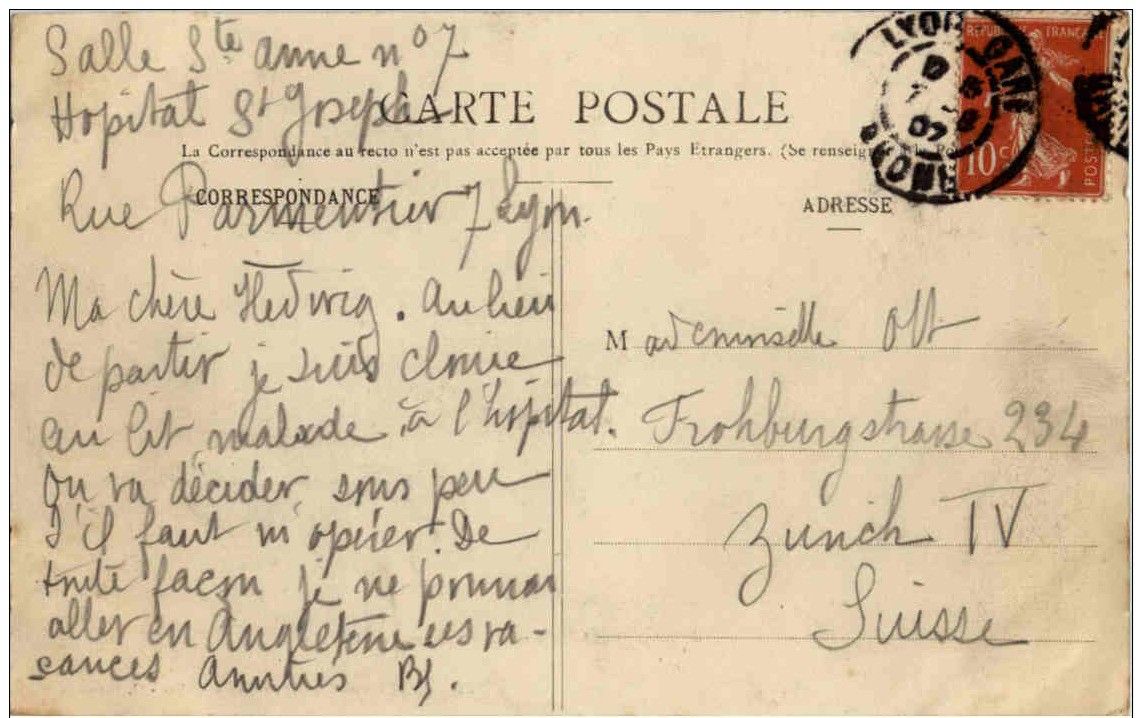 Salle Ste anne no 7
Hopital St Joseph
CARTE POSTALE
La Correspondance au recto n'est pas acceptée par tous les Pays Etrangers. (Se renseigner à la Po
Rue Parmentier 7 Lyon.
CORRESPONDANCE
ADRESSE
Ma chère Hedwig. Au lieu
de partir je suis clouée
au lit, malade, à l'hôpital.
On va décider sous peu
s'il faut m'opérer. De
toute façon je ne pourrai
aller en Angleterre ces va-
cances Amitiés
Mademoiselle Ott
Frohburgstrasse 234
Zurich IV
Suisse
LYON GARE
07
REPUBLIQUE FRANÇAISE
10c
POSTES